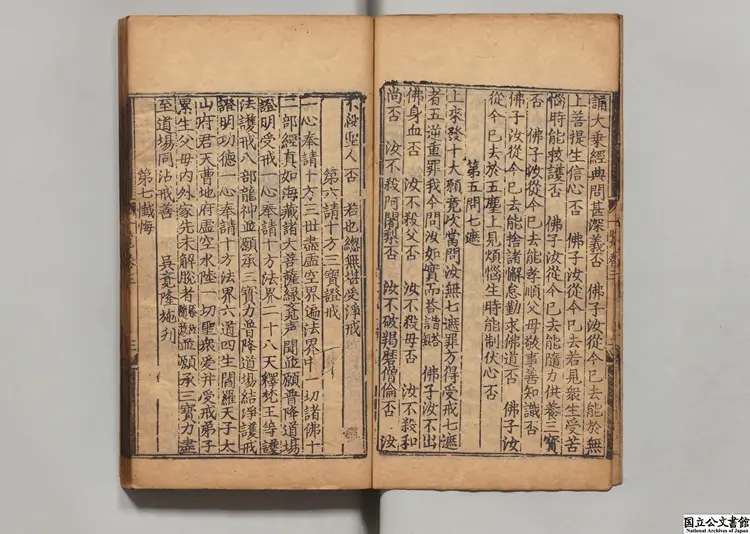 誦大乗經典問甚深義否　佛子汝從今已去能於無
上菩提生信心否　佛子汝從今已去若見衆生受苦
惱時能救護否　佛子汝從今已去能隨力供養三寳
否　佛子汝從今已去能孝順父母敬事善知識否
佛子汝從今已去能捨諸懈怠勤求佛道否　佛子汝
從今已去於五塵上見煩惱生時能制伏心否
第五問七遮
上來發十大願竟次當問汝無七遮罪方得受戒七遮
者五逆重罪我今問汝如實而荅　佛子汝不出
佛身血否　汝不殺父否　汝不殺母否　汝不殺和
尚否　汝不殺阿闍梨否　汝不破羯磨僧倫否　汝
不殺聖人否　若也緫無堪受淨戒
第六請十方三寳證戒
一心奉請十方三世盡虛空界遍法界中一切諸佛十
二部經真如海藏諸大菩薩縁覺聲聞並願普降道場
證明受戒一心奉請十方法界二十八天釋梵王等護
法護戒八部龍神並願承三寳力普降道場結淨護戒
證明功德一心奉請十方法界六道四生閻羅天子太
山府君天曹地府虛空水陸一切聖衆爰并受戒弟子
累生父母内外家先未解脫者並願承三寳力盡
至道場同沾戒善
吳覓隆施刋
第七懺悔
国立公文書館
National Archives of Japan